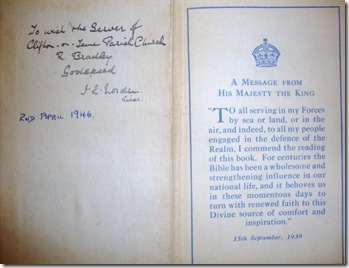 To wish the Server of
Clifton-on-Teme Parish Church
R Bradley
Godspeed
Vicar.
2ND APRIL 1946.
A MESSAGE FROM
HIS MAJESTY THE KING
"TO all serving in my Forces
by sea or land, or in the
air, and indeed, to all my people
engaged in the defence of the
Realm, I commend the reading
of this book. For centuries the
Bible has been a wholesome and
strengthening influence in our
national life, and it behoves us
in these momentous days to
turn with renewed faith to this
Divine source of comfort and
inspiration."
15th September, 1939